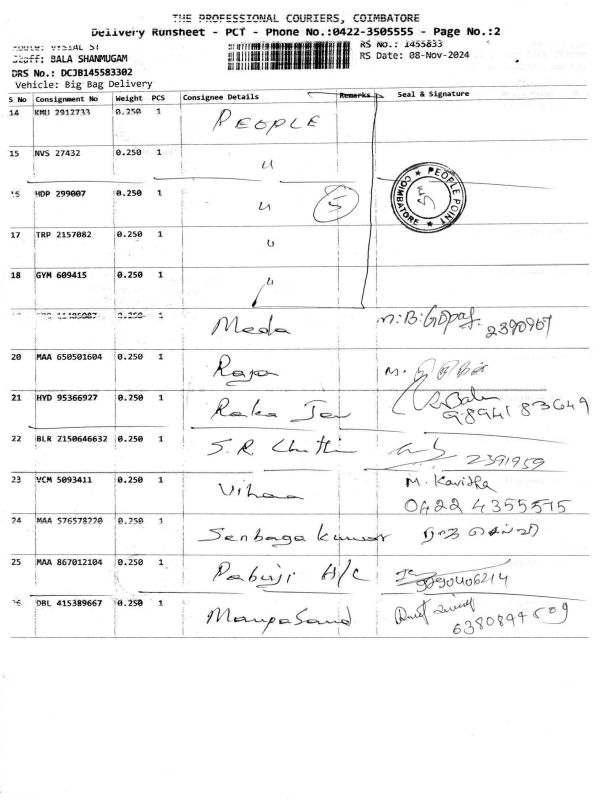 THE PROFESSIONAL COURIERS, COIMBATORE
Delivery Runsheet - PCT - Phone No.:0422-3505555 - Page No.:2
RS No.: 1455833
Staff: BALA SHANMUGAM
RS Date: 08-Nov-2024
DRS No.: DCJB145583302
Vehicle: Big Bag Delivery
S No Consignment No Weight PCS Consignee Details Remarks Seal & Signature
14 KMU 2912733 0.250 1 PEOPLE
15 NVS 27432 0.250 1 "
16 HDP 299007 0.250 1 " 5 PEOPLE POINT COIMBATORE
17 TRP 2157082 0.250 1 "
18 GYM 609415 0.250 1 "
0.250 1 Meda M:B:Gopal. 2390967
20 MAA 650501604 0.250 1 Raja M.
21 HYD 95366927 0.250 1 Raka Jen 9894183649
22 BLR 2150646632 0.250 1 S.R. Chettin 2391959
23 VCM 5093411 0.250 1 Vihaa M. Kavitha
0422 4355575
24 MAA 576578220 0.250 1 Senbaga kumar
25 MAA 867012104 0.250 1 Pabuji H/C 9090406214
26 DBL 415389667 0.250 1 Manpasand 6380894509